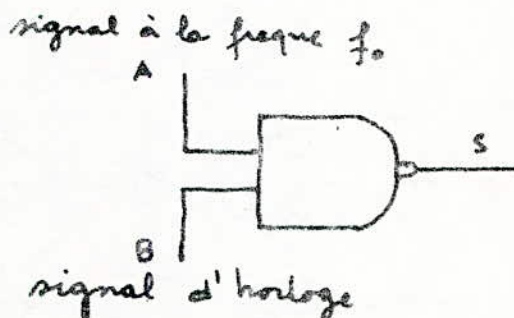 signal à la freque f₀
A
S
B
signal d'horloge